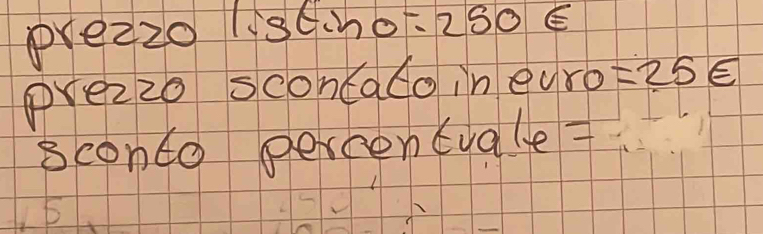 prezzo listino = 250 €
prezzo scontato in euro = 25 €
sconto percentuale =